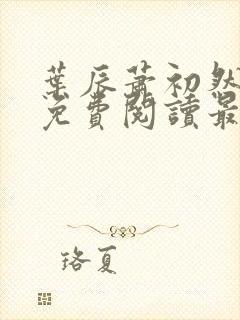 葉辰蕭初然
免費閱讀最
珞夏